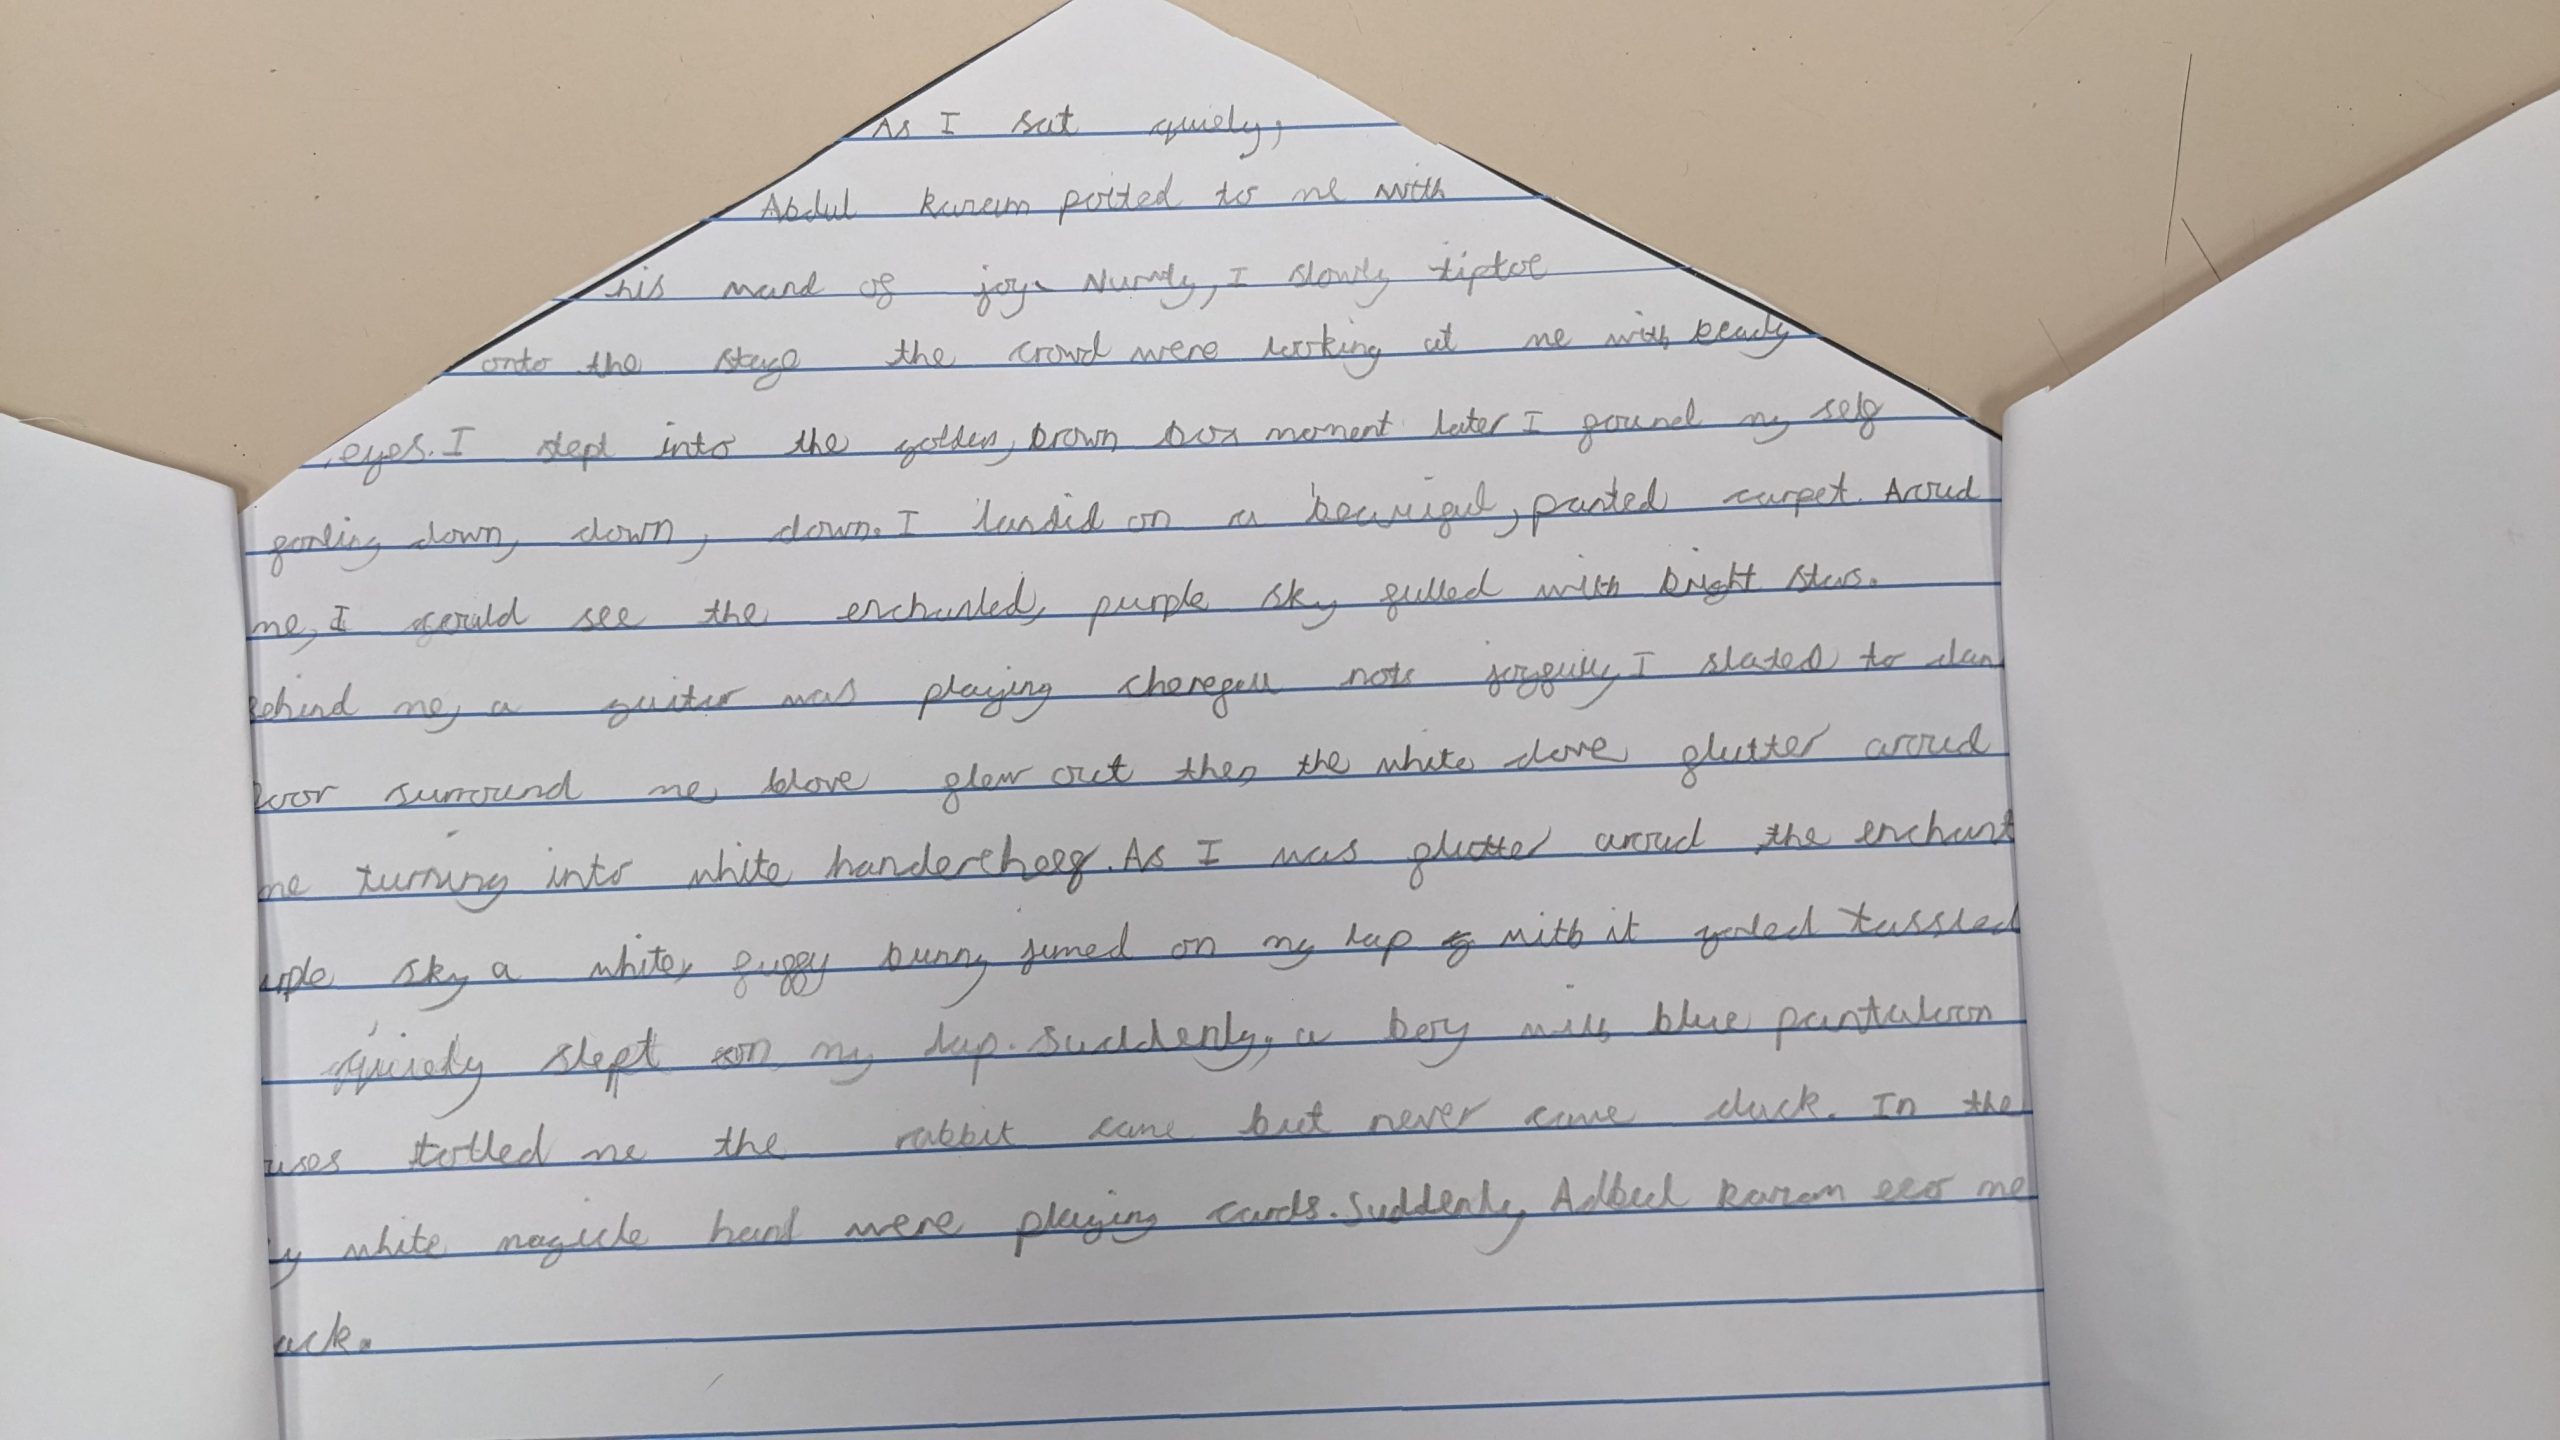 As I sat quiely,
Abdul karam poited to me with
his wand of joy. Nurvly, I slowly tiptoe
onto the stage the crowd were looking at me with beady
eyes. I stept into the golden, brown box moment later I found my self
fooling down, down, down. I landid on a beauriful, panted carpet. Aroud
me, I could see the enchanled, purple sky fulled with bright stars.
ehind me, a guitar was playing cherefull nots joyfully I stated to dan
loor surround me, blove flew out then the white dove flutter aroud
me turning into white handercheef. As I was flutter aroud the enchant
urple sky a white, fuffy bunny jumed on my lap with it goled tassled
quiely slept on my lap. Suddenly, a boy with blue pantaloon
uses totled me the rabbit came but never came duck. In the
y white magicle hand were playing cards. Suddenly, Adbul karam me
ack.